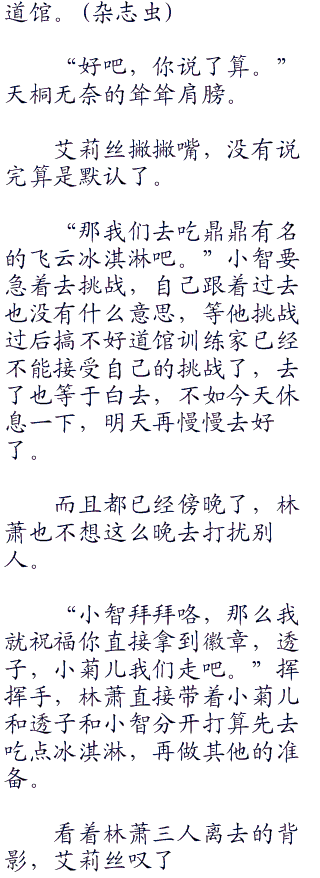 道馆。(杂志虫)
“好吧，你说了算。”
天桐无奈的耸耸肩膀。
艾莉丝撇撇嘴，没有说
完算是默认了。
“那我们去吃鼎鼎有名
的飞云冰淇淋吧。”小智要
急着去挑战，自己跟着过去
也没有什么意思，等他挑战
过后搞不好道馆训练家已经
不能接受自己的挑战了，去
了也等于白去，不如今天休
息一下，明天再慢慢去好
了。
而且都已经傍晚了，林
萧也不想这么晚去打扰别
人。
“小智拜拜咯，那么我
就祝福你直接拿到徽章，透
子，小菊儿我们走吧。”挥
挥手，林萧直接带着小菊儿
和透子和小智分开打算先去
吃点冰淇淋，再做其他的准
备。
看着林萧三人离去的背
影，艾莉丝叹了